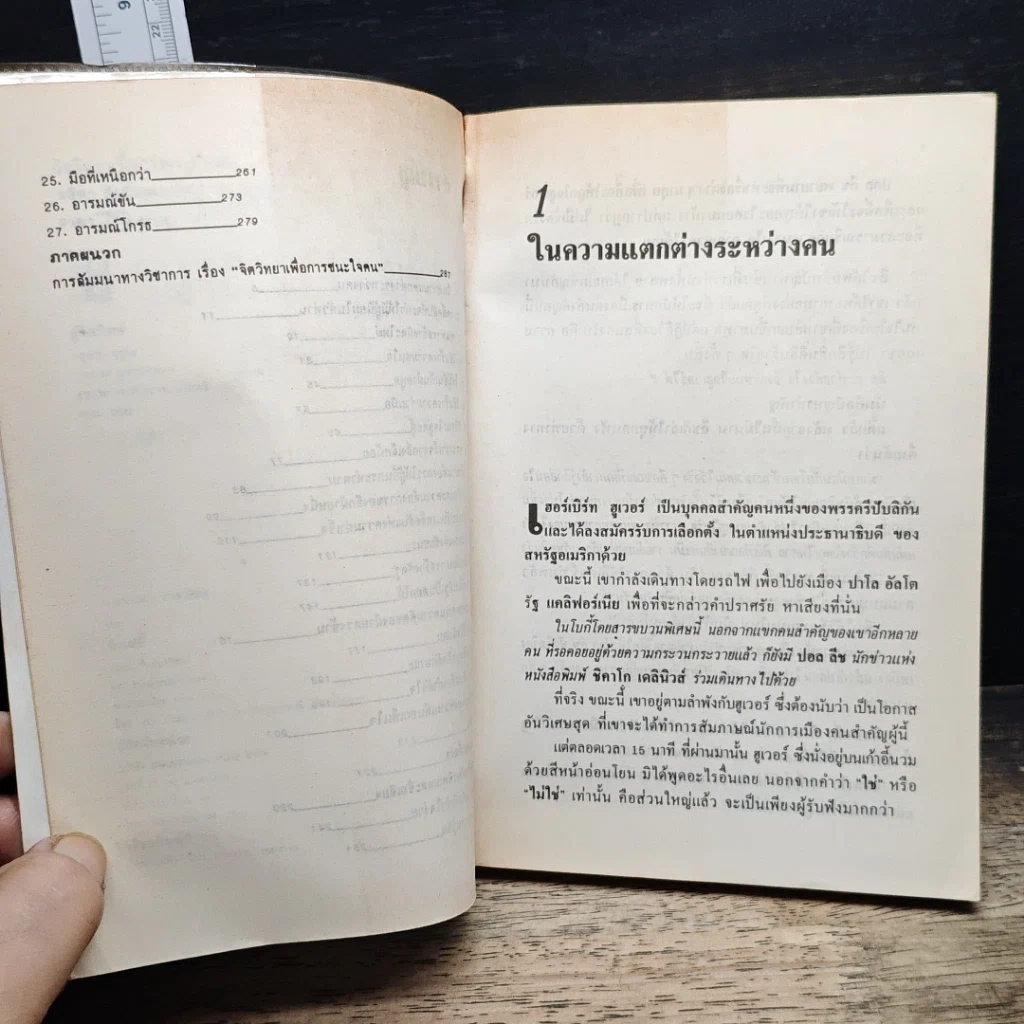 9
22
25. มือที่เหนือกว่า__________261
26. อารมณ์ขัน__________273
27. อารมณ์โกรธ__________279
ภาคผนวก
การสัมมนาทางวิชาการ เรื่อง “จิตวิทยาเพื่อการชนะใจคน”__________287
1
ในความแตกต่างระหว่างคน
เฮอร์เบิร์ท ฮูเวอร์ เป็นบุคคลสำคัญคนหนึ่งของพรรครีปับลิกัน
และได้ลงสมัครรับการเลือกตั้ง ในตำแหน่งประธานาธิบดี ของ
สหรัฐอเมริกาด้วย
ขณะนี้ เขากำลังเดินทางโดยรถไฟ เพื่อไปยังเมือง ปาโล อัลโต
รัฐ แคลิฟอร์เนีย เพื่อที่จะกล่าวคำปราศรัย หาเสียงที่นั่น
ในโบกี้โดยสารขบวนพิเศษนี้ นอกจากแขกคนสำคัญของเขาอีกหลาย
คน ที่รอคอยอยู่ด้วยความกระวนกระวายแล้ว ก็ยังมี ปอล ลีช นักข่าวแห่ง
หนังสือพิมพ์ ชิคาโก เดลินิวส์ ร่วมเดินทางไปด้วย
ที่จริง ขณะนี้ เขาอยู่ตามลำพังกับฮูเวอร์ ซึ่งต้องนับว่า เป็นโอกาส
อันวิเศษสุด ที่เขาจะได้ทำการสัมภาษณ์นักการเมืองคนสำคัญผู้นี้
แต่ตลอดเวลา 15 นาที ที่ผ่านมานั้น ฮูเวอร์ ซึ่งนั่งอยู่บนเก้าอี้นวม
ด้วยสีหน้าอ่อนโยน มิได้พูดอะไรอื่นเลย นอกจากคำว่า “ใช่” หรือ
“ไม่ใช่” เท่านั้น คือส่วนใหญ่แล้ว จะเป็นเพียงผู้รับฟังมากกว่า